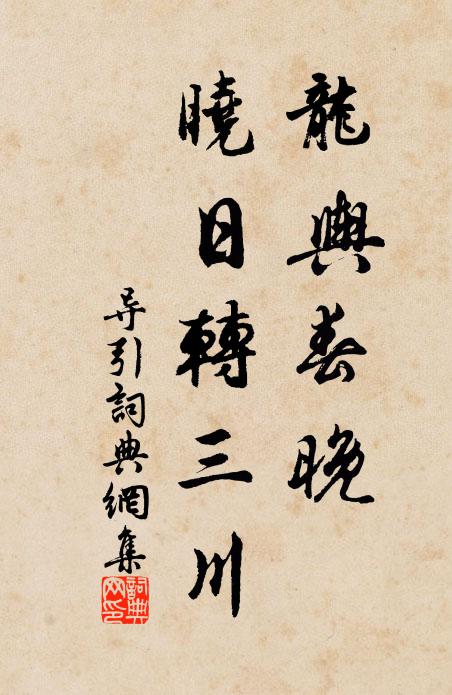 龍輿春晚
曉日轉三川
导引詞典網集
詞典
网印